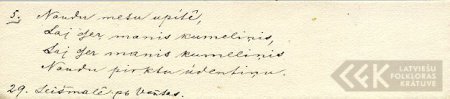 5. Naudu metu upītē,
Laj ſer manis kumeliņis,
Laj ſer manis kumeliņis
Naudu pirktu ūdentiņu.
29. Leišmalē pb Vectas.
LATVIEŠU
FOLKLORAS
KRĀTUVE